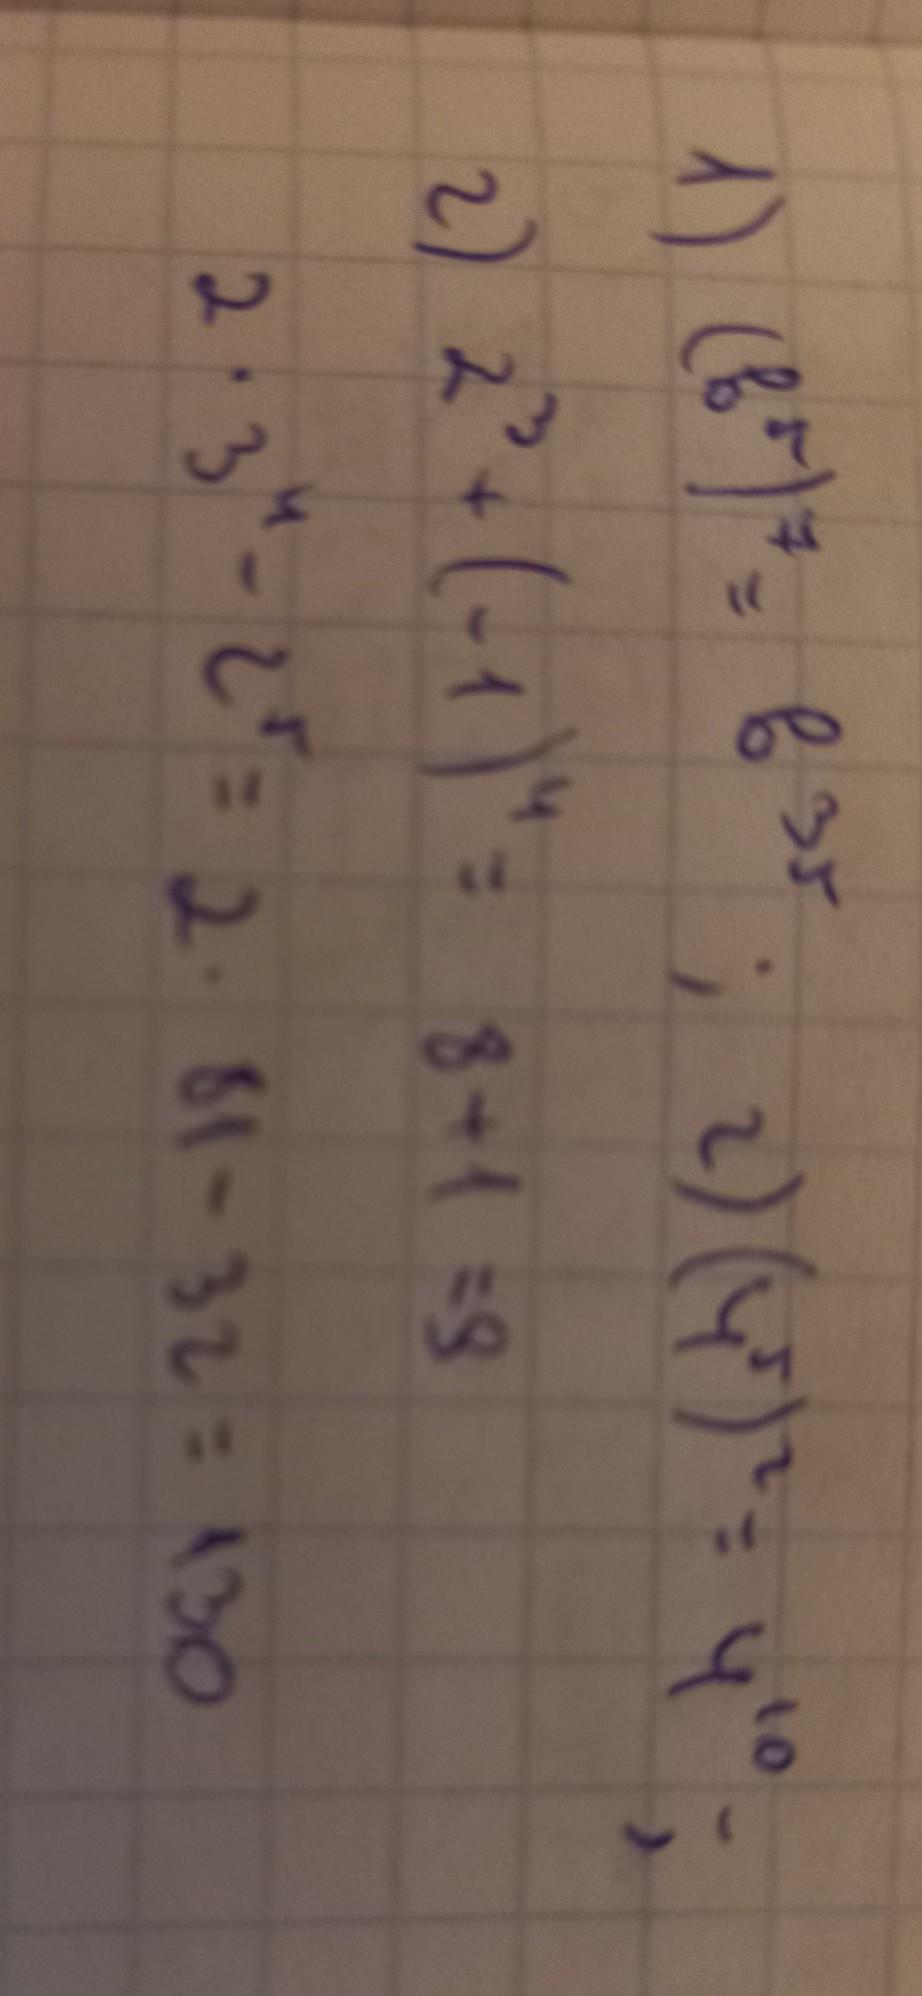 1) (b⁵)⁷ = b³⁵ ; 2) (y⁵)² = y¹⁰ ;
2) 2³ + (-1)⁴ = 8 + 1 = 9
2 · 3⁴ - 2⁵ = 2 · 81 - 32 = 130